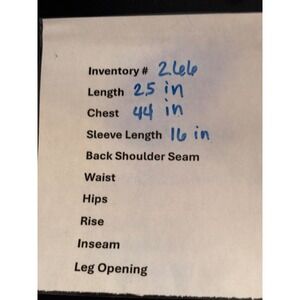 Inventory # 266
Length 25 in
Chest 44 in
Sleeve Length 16 in
Back Shoulder Seam
Waist
Hips
Rise
Inseam
Leg Opening